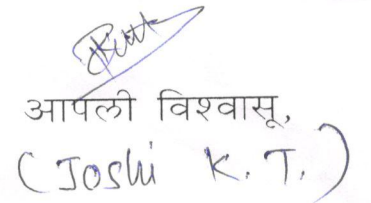 आपली विश्वासू,
(Joshi K. T.)